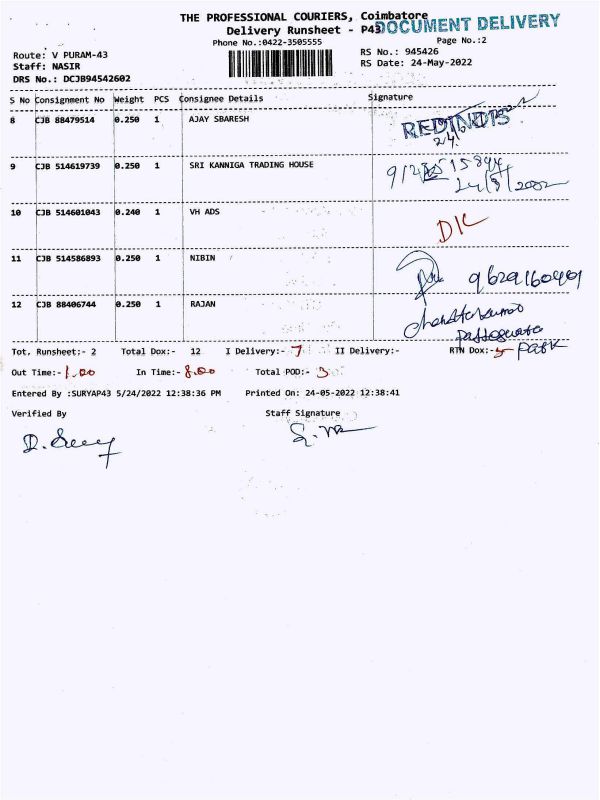 THE PROFESSIONAL COURIERS, Coimbatore
Delivery Runsheet - P43
DOCUMENT DELIVERY
Phone No.:0422-3505555
Page No.:2
Route: V PURAM-43
RS No.: 945426
Staff: NASIR
RS Date: 24-May-2022
DRS No.: DCJB94542602
S No Consignment No Weight PCS Consignee Details Signature
8 CJB 88479514 0.250 1 AJAY SBARESH
REDINDIS
9 CJB 514619739 0.250 1 SRI KANNIGA TRADING HOUSE
10 CJB 514601043 0.240 1 VH ADS
11 CJB 514586893 0.250 1 NIBIN
9629160491
12 CJB 88406744 0.250 1 RAJAN
Tot, Runsheet:- 2 Total Dox:- 12 I Delivery:- 7 II Delivery:- RTN Dox:- 5
Out Time:- 1.00 In Time:- 8.00 Total POD:- 3
Entered By :SURYAP43 5/24/2022 12:38:36 PM Printed On: 24-05-2022 12:38:41
Verified By Staff Signature